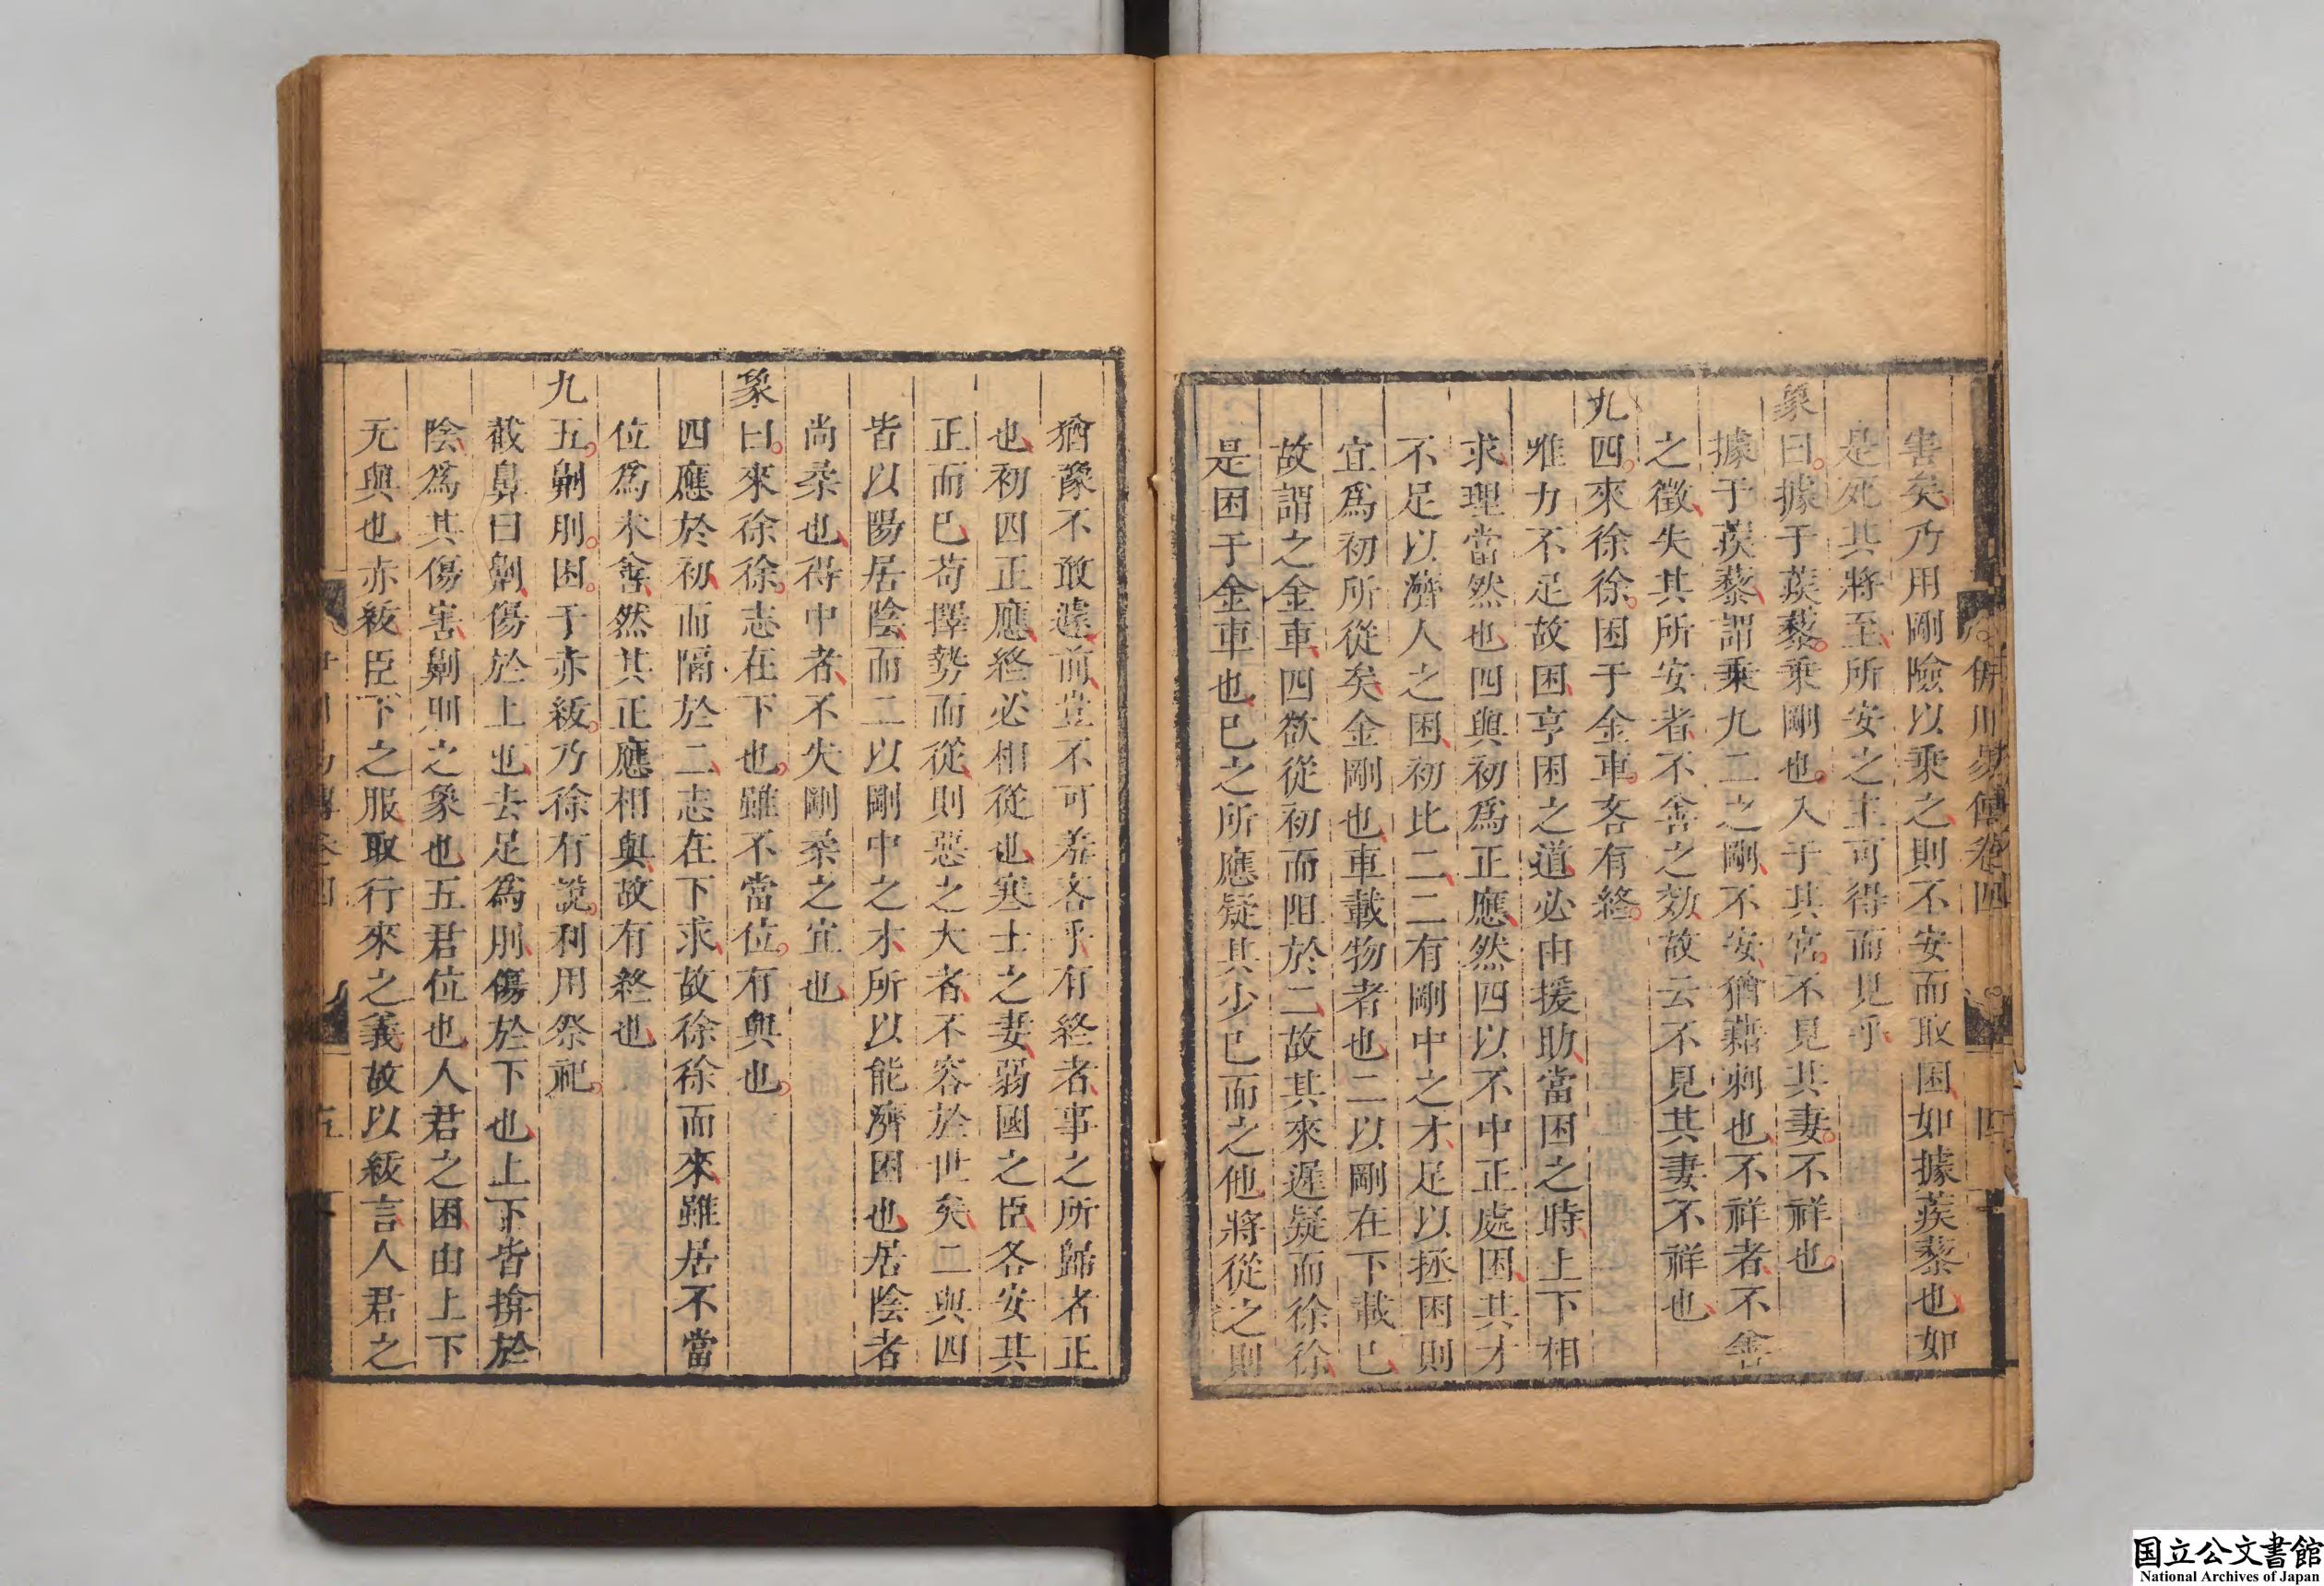 伊川易傳卷四　四
害矣乃用剛險以乘之則不安而取困如據蒺藜也如
是死其將至所安之主可得而見乎
象曰據于蒺藜乘剛也入于其宮不見其妻不祥也
據于蒺藜謂乘九二之剛不安猶藉刺也不祥者不善
之徵失其所安者不善之效故云不見其妻不祥也
九四來徐徐困于金車吝有終
唯力不足故困亨困之道必由援助當困之時上下相
求理當然也四與初爲正應然四以不中正處困其才
不足以濟人之困初比二二有剛中之才足以拯困則
宜爲初所從矣金剛也車載物者也二以剛在下載己
故謂之金車四欲從初而阻於二故其來遲疑而徐徐
是困于金車也己之所應疑其少己而之他將從之則
猶豫不敢遽前豈不可羞吝乎有終者事之所歸者正
也初四正應終必相從也寒士之妻弱國之臣各安其
正而已苟擇勢而從則惡之大者不容於世矣二與四
皆以陽居陰而二以剛中之才所以能濟困也居陰者
尚柔也得中者不失剛柔之宜也
象曰來徐徐志在下也雖不當位有與也
四應於初而隔於二志在下求故徐徐而來雖居不當
位爲未善然其正應相與故有終也
九五劓刖困于赤紱乃徐有說利用祭祀
截鼻曰劓傷於上也去足爲刖傷於下也上下皆揜於
陰爲其傷害劓刖之象也五君位也人君之困由上下
无與也赤紱臣下之服取行來之義故以紱言人君之